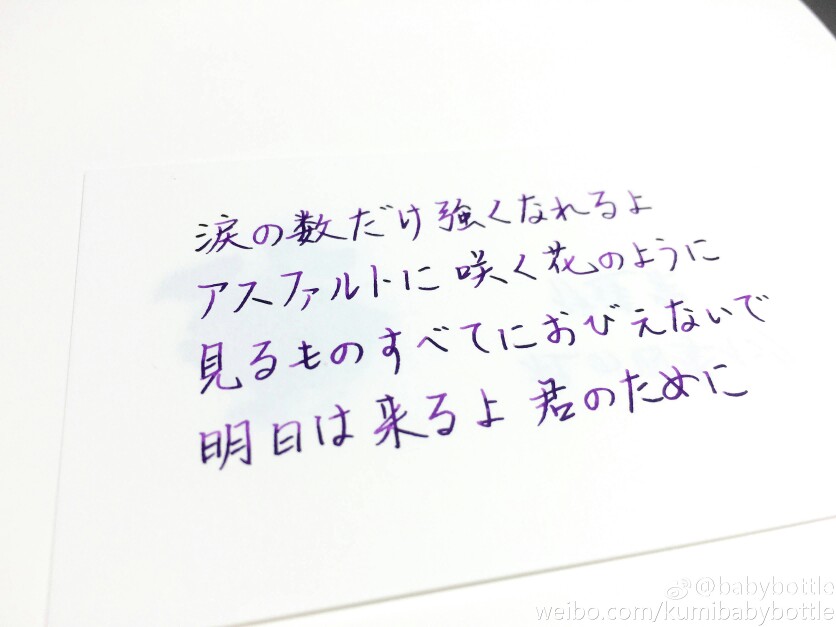 涙の数だけ強くなれるよ
アスファルトに咲く花のように
見るものすべてにおびえないで
明日は来るよ 君のために
@babybottle
weibo.com/kumibabybottle